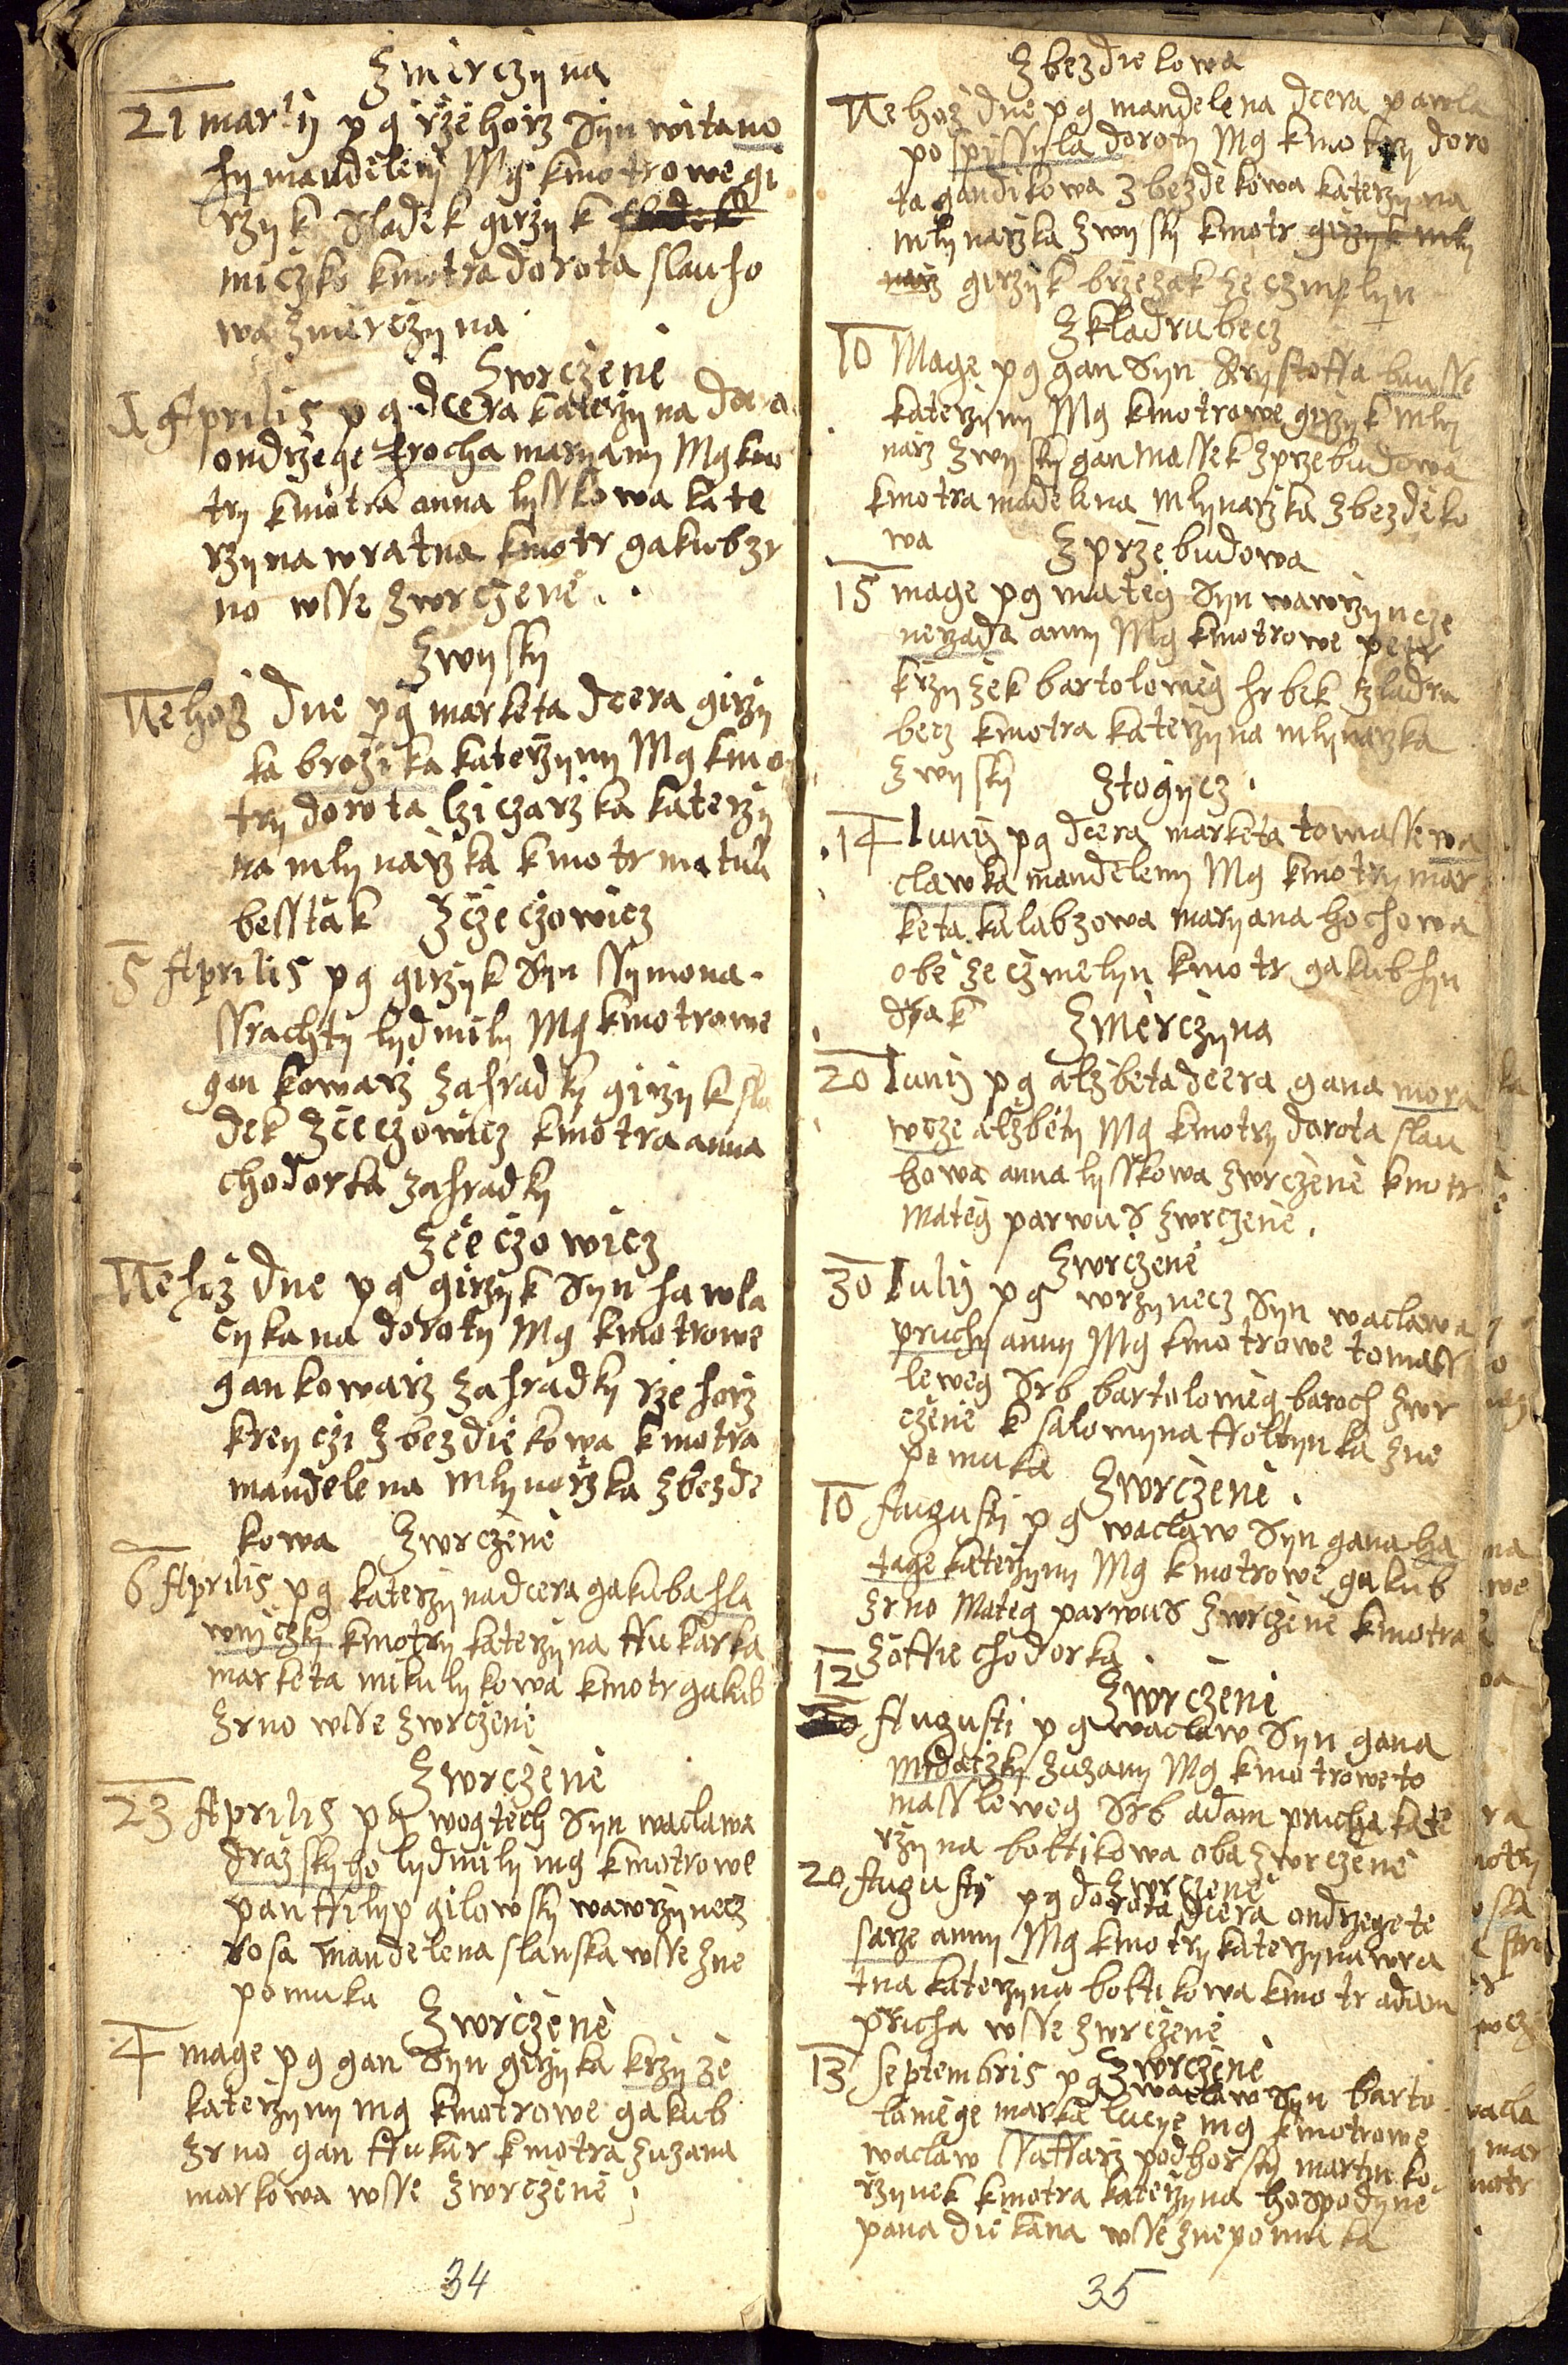 Zmierczyna
21 martij p g rzehorz Syn witano
hy mandeleny Mg kmotrowe gi
rzyk Sladek girzyk
miczko kmotra dorota slauho
wa zmierczyna
Zwrczene
1 Aprilis p g dcera katerzyna dcera
ondrzege trocha maryany Mg kmo
try kmotra anna lysskowa kate
rzyna wratna kmotr gakub zr
no wsse zwrczene
Zwysky
Tehoz dne p g marketa dcera girzy
ka brozika katerzyny Mg kmo
try dorota lziczarzka katerzy
na mlynarzka kmotr matuss
besstak Zczeczowicz
5 Aprilis p g girzyk Syn Ssymona
Ssrachty lydmily Mg kmotrowe
gan kowarz zahradky girzyk sla
dek zczeczowicz kmotra anna
chodorka zahradky
Zczeczowicz
Tehoz dne p g girzyk Syn hawla
cykana doroty Mg kmotrowe
gan kowarz zahradky rzehorz
kreyczi zbezdiekowa kmotra
mandelena mlynorzka zbezde
kowa Zwrczene
6 Aprilis p g katerzyna dcera gakuba hla
wniczky kmotry katerzyna ffukarka
marketa mikulykowa kmotr gakub
zrno wsse zwrczene
Zwrczene
23 Aprilis p g wogtech Syn waclawa
drazskyho lydmily mg kmotrowe
pan ffilyp gilowsky wawrzynecz
rosa mandelena slanska wsse zne
pomuka
Zwrczene
4 mage p g gan Syn girzyka krzyze
katerzyny mg kmotrowe gakub
zrno gan ffukar kmotra zuzana
markowa wsse zwrczene
34
Zbezdielowa
Tehoz dne p g mandelena dcera pawla
pospissyla doroty Mg kmotry doro
ta gandikowa zbezdekowa katerzyna
mlynarzka zwysky kmotr girzyk mly
narz girzyk brzezak ze czmelyn
Zkladrubecz
10 Mage p g gan Syn Krystoffa bausse
katerzyny Mg kmotrowe girzyk mly
narz zwysky gan massek zprzebudowa
kmotra madelena mlynarzka zbezdeko
wa
Zprzebudowa
15 mage p g mateg Syn wawrzyncze
nezada anny Mg kmotrowe petr
krzyzek bartolomeg hrbek zkladru
becz kmotra katerzyna mlynarzka
zwysky Ztogycz
14 Iunij p g dcera marketa tomasse wa
clawka mandeleny Mg kmotry mar
keta kalabzowa maryana hochowa
obe ze czmelyn kmotr gakub hyn
drak Zmierczyna
20 Iunij p g alzbeta dcera gana mora
wcze alzbety Mg kmotry dorota slau
howa anna lysskowa zwrczene kmotr
mateg parwus zwrczene
Zwrczene
30 Iulij p g wrzynecz Syn waclawa
pruchy anny Mg kmotrowe tomass
leweg Srb bartolomeg baroch zwr
czene k salomyna ffoltynka zne
pomuka
Zwrczene
10 Augusti p g waclaw Syn gana ha
tage katerzyny Mg kmotrowe gakub
zrno Mateg parwus zwrczene kmotra
zoffie chodorka
Zwrczene
12 Augusti p g waclaw Syn gana
mrdaczky zuzany Mg kmotrowe to
mass leweg Srb adam prucha kate
rzyna bottikowa oba zwrczene
Zwrczene
20 Augusti p g dorota dcera ondrzege te
sarze anny Mg kmotry katerzyna wra
tna katerzyna bottikowa kmotr adam
prucha wsse zwrczene
Zwrczene
13 septembris p g waclaw Syn barto
lomege marka lucye mg kmotrowe
waclaw Ssaffarz podhorsky martin ko
rzynek kmotra katerzyna hospodyne
pana diekana wsse znepomuka
35